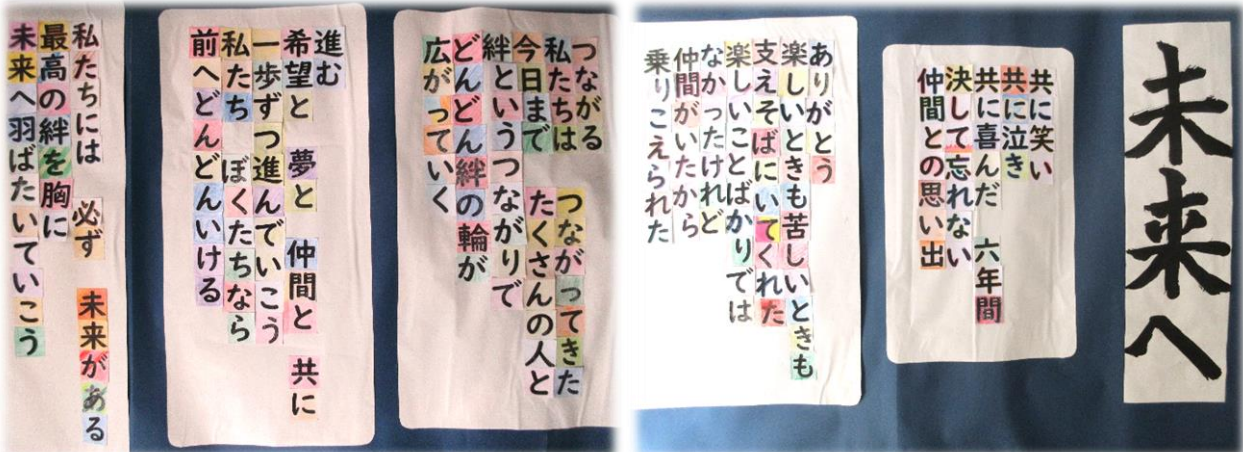 未来へ
共に笑い
共に泣き
共に喜んだ　六年間
決して忘れない
仲間との思い出
ありがとう
楽しいときも苦しいときも
支えそばにいてくれた
楽しいことばかりでは
なかったけれど
仲間がいたから
乗りこえられた
つながる　つながってきた
私たちは　たくさんの人と
今日まで
絆というつながりで
どんどん絆の輪が
広がっていく
進む
希望と　夢と　仲間と　共に
一歩ずつ進んでいこう
私たち　ぼくたちなら
前へどんどんいける
私たちには　必ず　未来がある
最高の絆を胸に
未来へ羽ばたいていこう